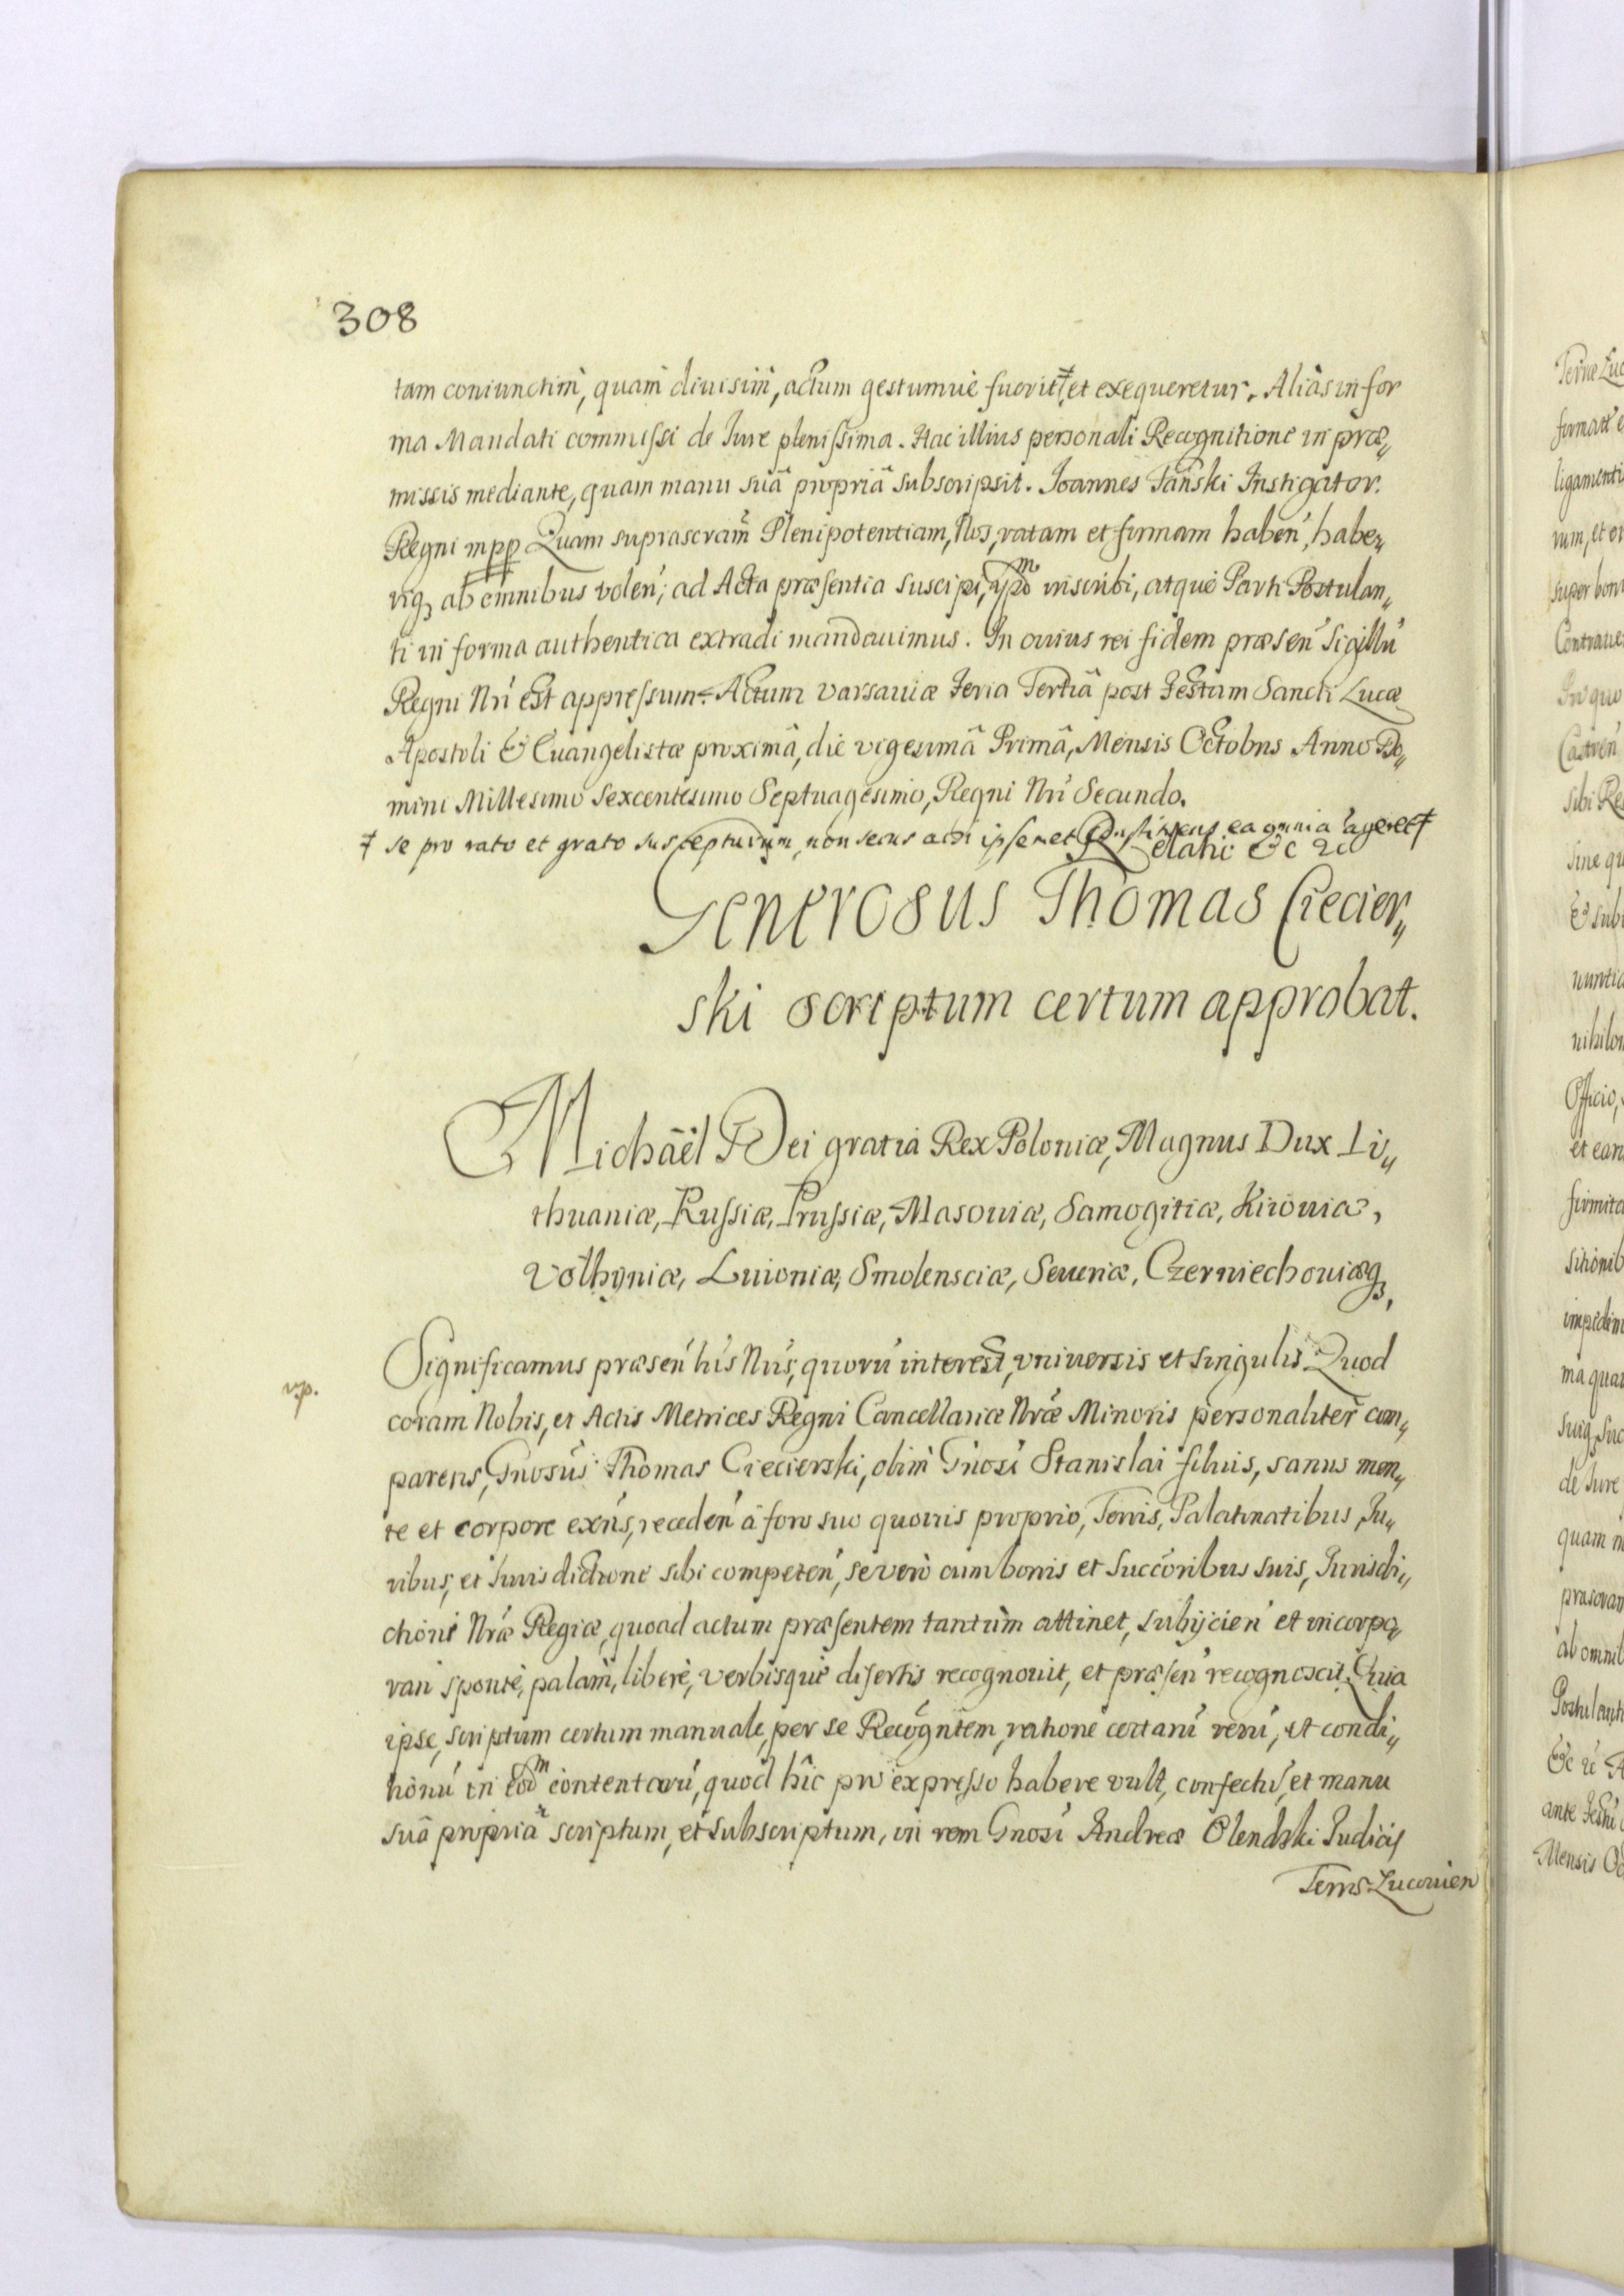 308
tam coniunctim, quam diuisim, actum gestumue fuerit ‡, et exequeretur. Alias in for
ma Mandati commissi de Iure plenissima. Hac illius personali Recognitione in præ„
missis mediante, quam manu suâ propriâ subscripsit. Joannes Tański Instigator.
Regni mpp Quam suprascram Plenipotentiam, Nos, ratam et firmam haben, habe„
riq3 ab omnibus volen; ad Acta præsentia suscipi, ijsdm inscribi, atque Parti Postulan„
ti in forma authentica extradi mandauimus. In cuius rei fidem præsen Sigillu
Regni Nri est appressum. Actum Varsauiæ Feria Tertiâ post Festum Sancti Lucæ
Apostoli & Euangelistæ proximâ, die vigesimâ Primâ, Mensis Octobris Anno Do„
mini Millesimo Sexcentesimo Septuagesimo, Regni Nri Secundo.
‡ se pro rato et grato suscepturum, non secus ac si ipsemet Constituens ea omnia ageret ‡
Relatio &c 2c
Generosus Thomas Ciecier„
ski scriptum certum approbat.
Michaël Dei gratia Rex Poloniæ, Magnus Dux Li„
thuaniæ, Russiæ, Prussiæ, Masouiæ, Samogitiæ, Kiiouiæ,
Volhyniæ, Liuoniæ, Smolensciæ, Seueriæ, Czerniechouiæq3,
Significamus præsen his Nris, quoru interest, vniuersis et singulis Quod
vp.
coram Nobis, et Actis Metrices Regni Cancellariæ Nræ Minoris personaliter com„
parens, Gnosus Thomas Ciecierski, olim Gnosi Stanislai filius, sanus men„
te et corpore exns, receden à foro suo quouis proprio, Terris, Palatinatibus, Iu„
ribus, et Iurisdictione sibi competen, se vero cum bonis et Succoribus suis, Iurisdi„
ctioni Nræ Regiæ, quoad actum præsentem tantum attinet, subijcien et incorpo„
ran sponte, palam, libere, verbisque disertis recognouit, et præsen recognoscit. Quia
ipse, scriptum certum manuale, per se Recogntem, ratione certaru reru, et condi„
tionu in eodm contentaru, quod hîc pro expresso habere vult, confectu, et manu
suâ propriâ scriptum, et subscriptum, in rem Gnosi Andreæ Olendzki Iudicis
Terris Lucouien